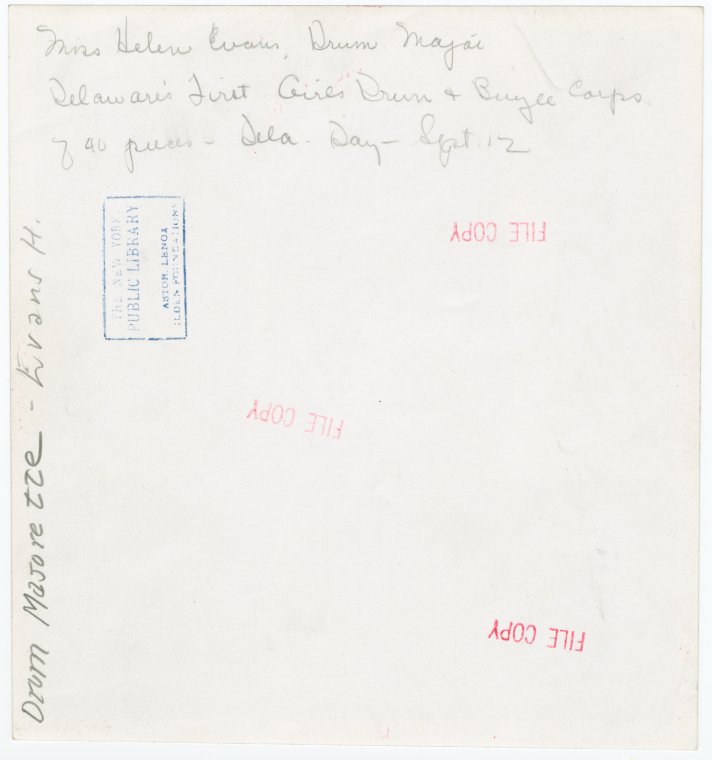 Miss Helen Evans, Drum Major
Delaware's First Girls Drum & Bugle Corps.
of 40 pieces - Dela. Day - Sept. 12
THE NEW YORK
PUBLIC LIBRARY
ASTOR, LENOX
TILDEN FOUNDATIONS
FILE COPY
FILE COPY
FILE COPY
Drum Majorette - Evans H.